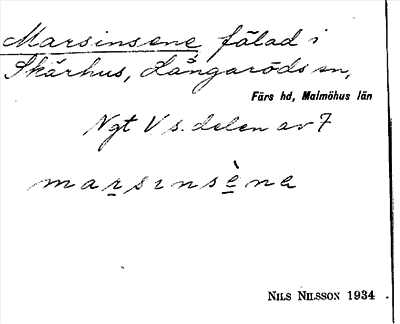 Marsinsene, fälad i
Skärhus, Långaröds sn,
Färs hd, Malmöhus län
Ngt V s. delen av 7
marsinsèna
NILS NILSSON 1934